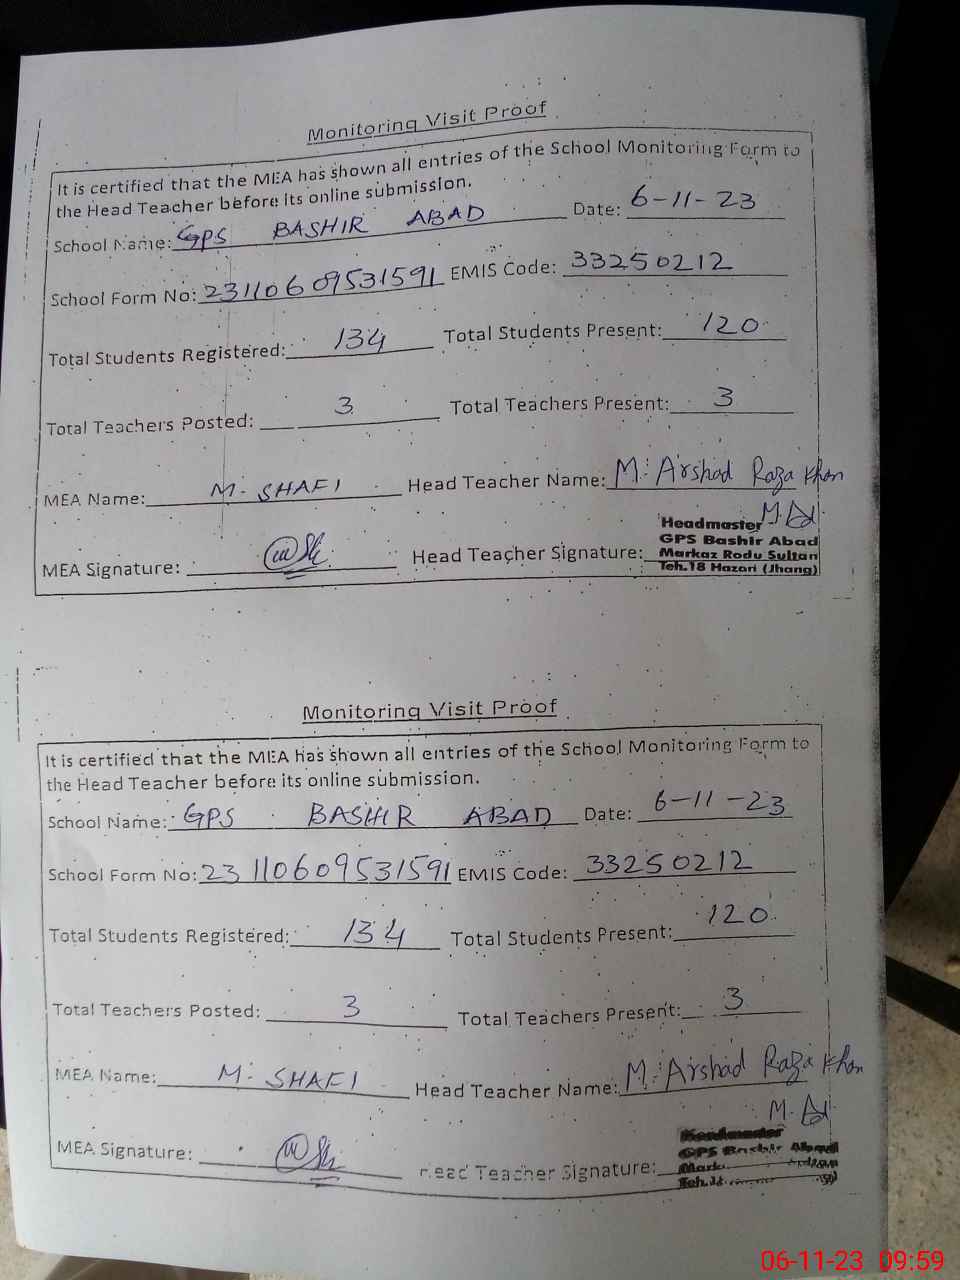 Monitoring Visit Proof
It is certified that the MEA has shown all entries of the School Monitoring Form to
the Head Teacher before its online submission.
School Name: GPS BASHIR ABAD Date: 6-11-23
School Form No: 23110609531591 EMIS Code: 33250212
Total Students Registered: 134 Total Students Present: 120
Total Teachers Posted: 3 Total Teachers Present: 3
MEA Name: M. SHAFI Head Teacher Name: M. Arshad Raza Khan
MEA Signature: Head Teacher Signature:
Headmaster
GPS Bashir Abad
Markaz Rodu Sultan
Teh.18 Hazari (Jhang)
Monitoring Visit Proof
It is certified that the MEA has shown all entries of the School Monitoring Form to
the Head Teacher before its online submission.
School Name: GPS BASHIR ABAD Date: 6-11-23
School Form No: 23110609531591 EMIS Code: 33250212
Total Students Registered: 134 Total Students Present: 120
Total Teachers Posted: 3 Total Teachers Present: 3
MEA Name: M. SHAFI Head Teacher Name: M. Arshad Raza Khan
MEA Signature: Head Teacher Signature:
Headmaster
GPS Bashir Abad
06-11-23 09:59